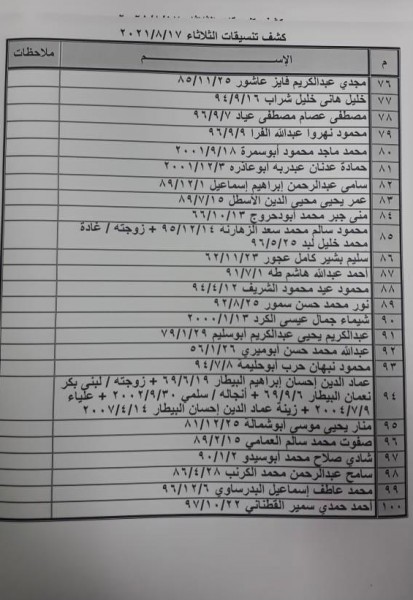 كشف تنسيقات الثلاثاء ٢٠٢١/٨/١٧
م الإســـم ملاحظات
٧٦ مجدي عبدالكريم فايز عاشور ٨٥/١١/٢٥
٧٧ خليل هانى خليل شراب ٩٤/٩/١٦
٧٨ مصطفى عصام مصطفى عياد ٩٦/٩/٧
٧٩ محمود نهروا عبدالله الفرا ٩٦/٩/٩
٨٠ محمد ماجد محمود أبوسمرة ٢٠٠١/٩/١٨
٨١ حمادة عدنان عبدربه أبوعاذره ٢٠٠١/١٢/٣
٨٢ سامى عبدالرحمن إبراهيم إسماعيل ٨٩/١٢/١
٨٣ عمر يحيي محيي الدين الأسطل ٨٩/٧/١٥
٨٤ منى جبر محمد أبودحروج ٦٦/١٠/١٣
٨٥ محمود سالم محمد سعد الزهارنه ٩٥/١٢/١٤ + زوجته / غادة
محمد خليل لبد ٩٦/٥/٢٥
٨٦ سليم بشير كامل عجور ٦٢/١١/٢٣
٨٧ أحمد عبدالله هاشم طه ٩١/٧/١
٨٨ محمود عيد محمود الشريف ٩٤/٤/١٢
٨٩ نور محمد حسن سمور ٩٢/٨/٢٥
٩٠ شيماء جمال عيسى الكرد ٢٠٠٠/١/١٣
٩١ عبدالكريم يحيى عبدالكريم أبوسليم ٧٩/١/٢٩
٩٢ عبدالله محمد حسن أبوميري ٥٦/١/٢٦
٩٣ محمود نبهان حرب أبوحليمة ٩٤/٧/٨
٩٤ عماد الدين إحسان إبراهيم البيطار ٦٩/٦/١٩ + زوجته / لبني بكر
نعمان البيطار ٦٩/٩/٦ + أنجاله / سلمي ٢٠٠٢/٩/٣٠ + علياء
٢٠٠٤/٧/٩ + زينة عماد الدين إحسان البيطار ٢٠٠٧/٤/١٤
٩٥ منار يحيي موسى أبوشمالة ٨١/١٢/٢٥
٩٦ صفوت محمد سالم العمامي ٨٩/٢/١٥
٩٧ شادي صلاح محمد أبوسيدو ٩٠/١/٢
٩٨ سامح عبدالرحمن محمد الكرنب ٨٦/٤/٢٨
٩٩ محمد عاطف إسماعيل البدرساوي ٩٦/١٢/٦
١٠٠ أحمد حمدي سمير القطناني ٩٧/١٠/٢٢